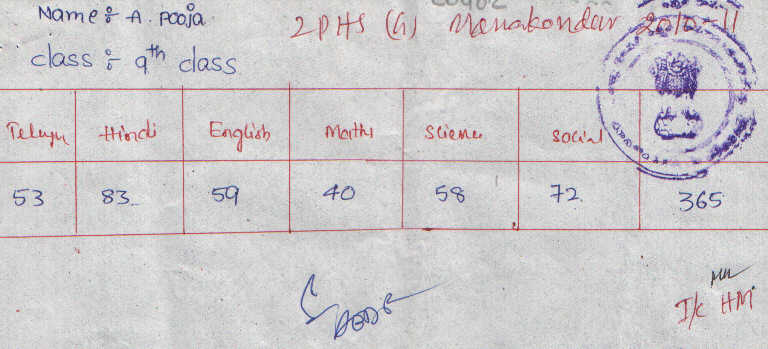 Name :- A. Pooja
ZPHS (G) Manakondur 2010-11
class :- 9th class
Telugu Hindi English Maths Science social
53 83 59 40 58 72 365
I/c HM